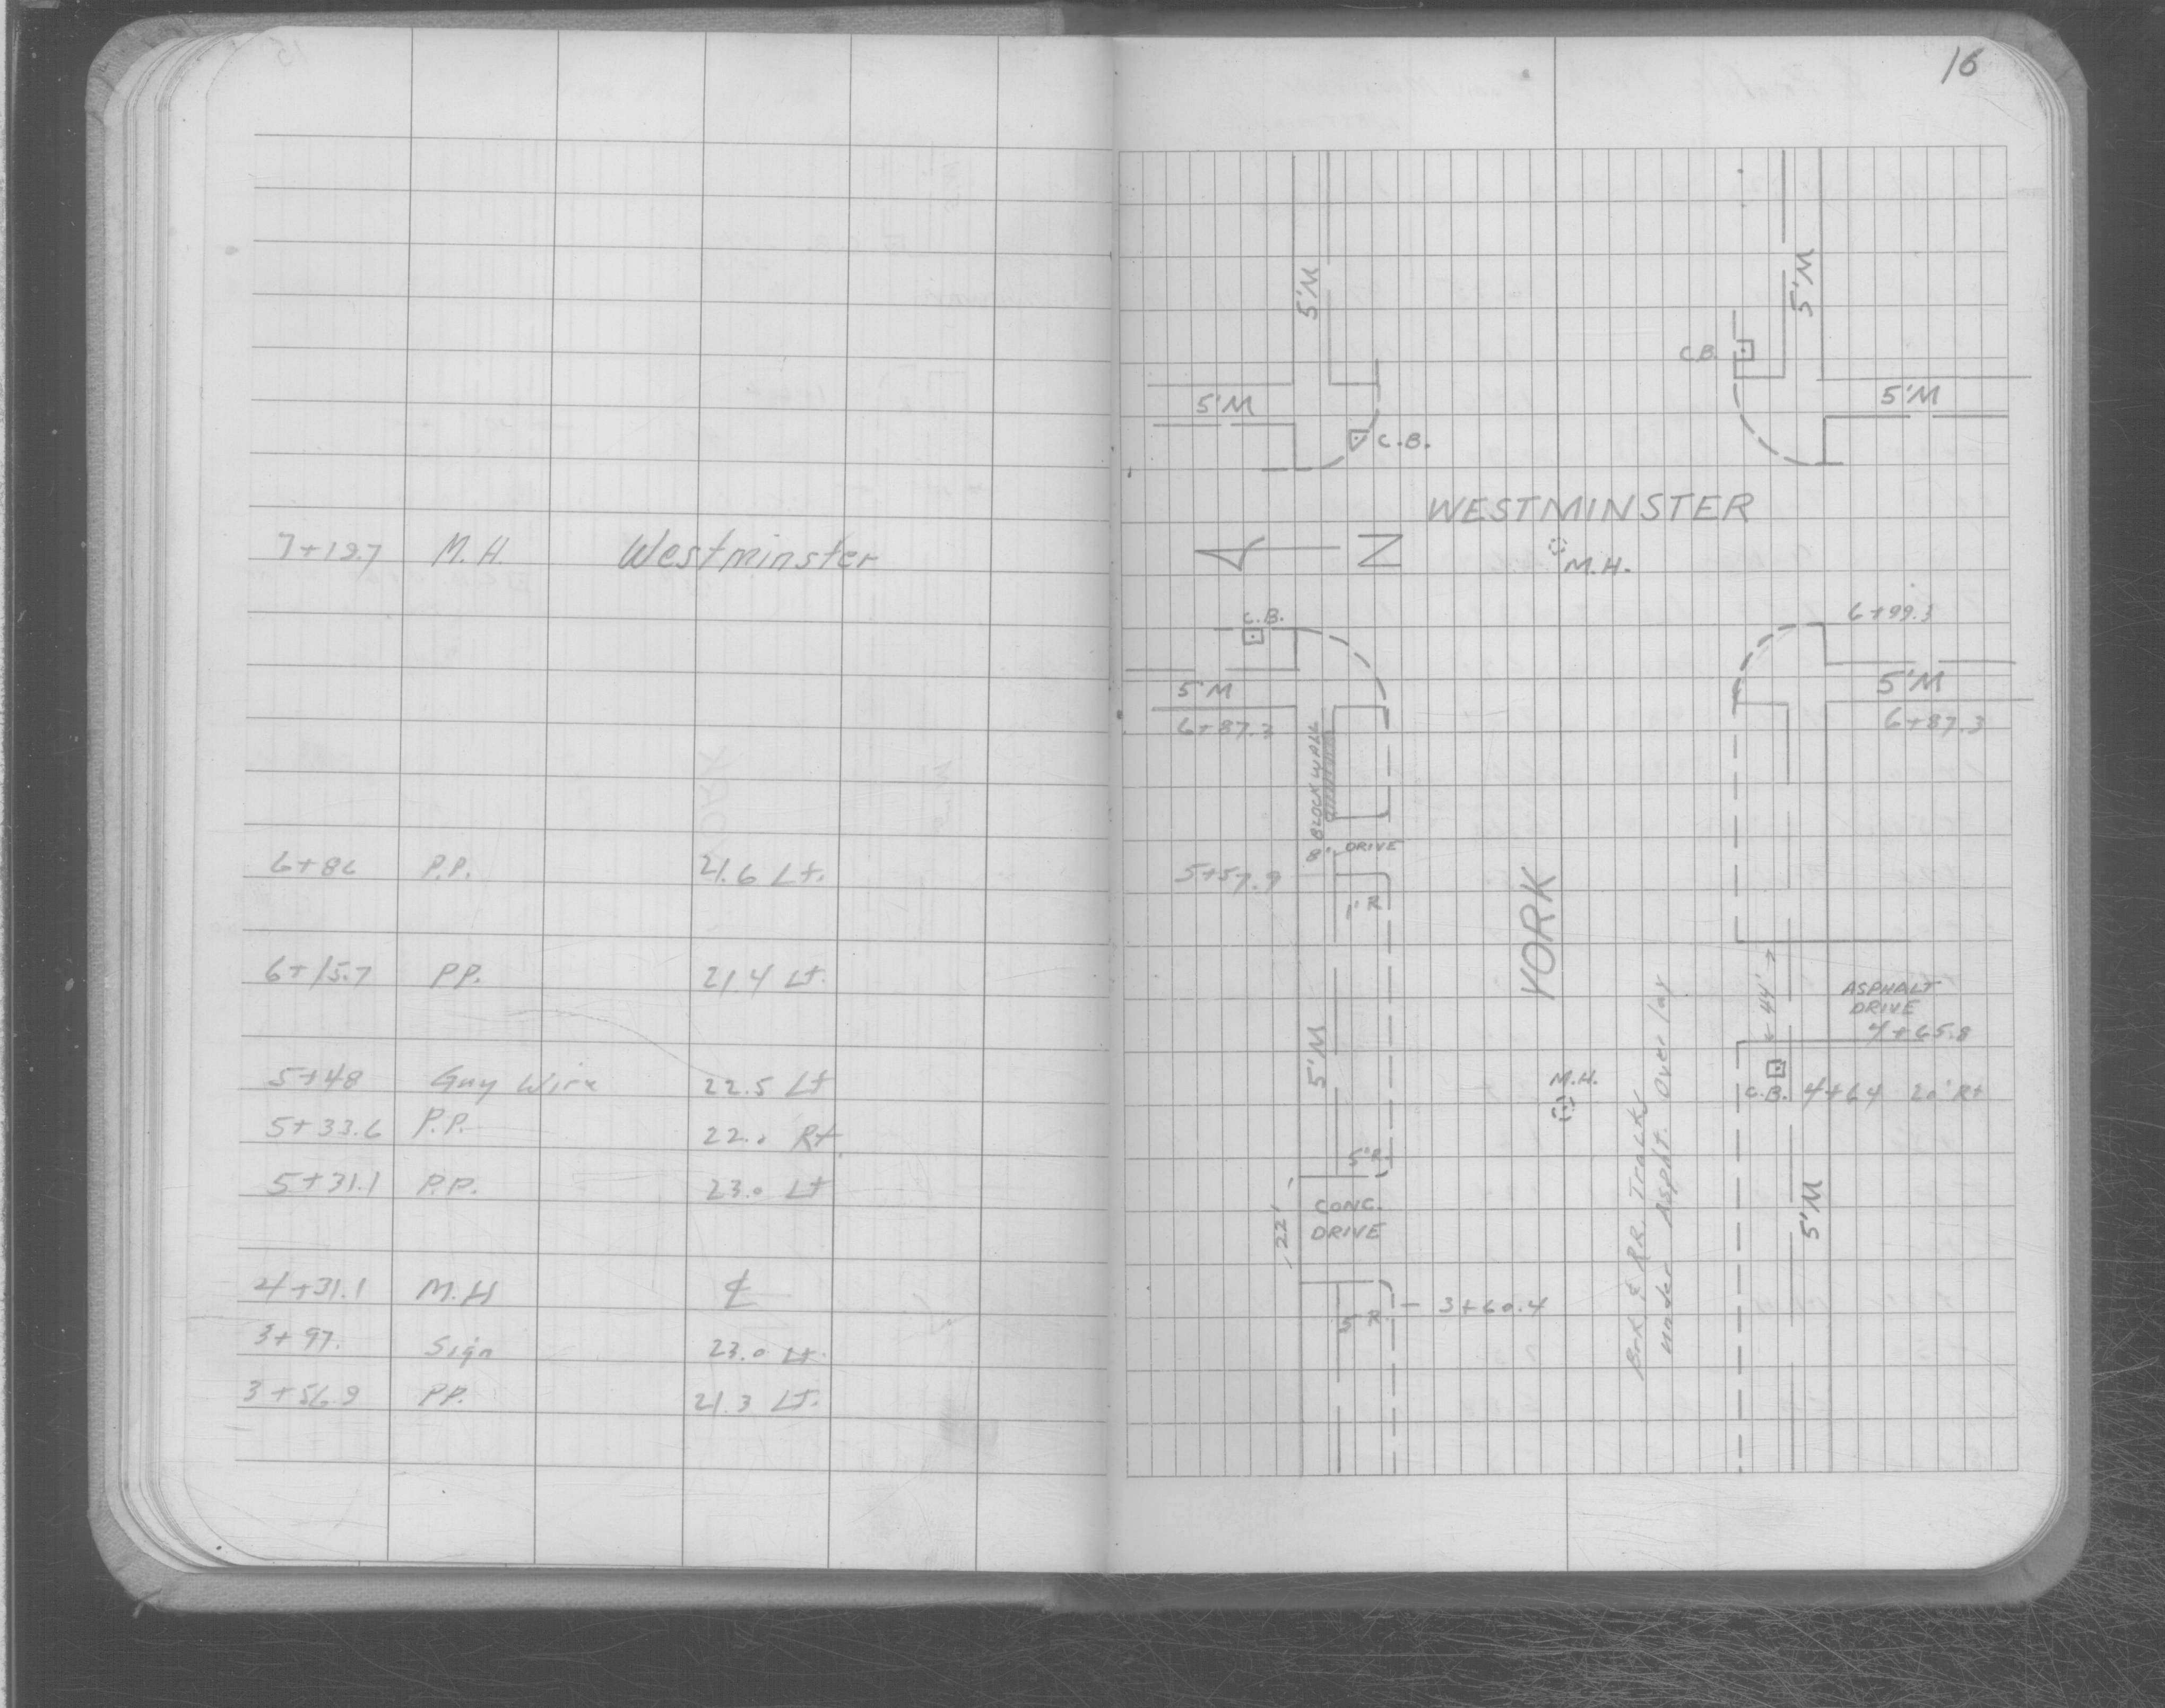 16
7+19.7 M.H. Westminster
6+86 P.P. 21.6 Lt.
6+15.7 P.P. 21.4 Lt.
5+48 Guy Wire 22.5 Lt
5+33.6 P.P. 22.0 Rt.
5+31.1 P.P. 23.0 Lt
4+31.1 M.H ℄
3+97. Sign 23.0 Lt.
3+56.9 P.P. 21.3 Lt.
5'M
5'M
C.B.
5'M
5'M
C.B.
WESTMINSTER
N
M.H.
C.B.
6+99.3
5'M
5'M
6+87.3
6+87.3
8" BLOCK WALL
DRIVE
5+57.9
1' R
YORK
44'
ASPHALT
DRIVE
4+65.8
5'M
M.H.
C.B. 4+64 20' Rt
Brk & RR. Tracks
under Aspht. Over lay
5'R
22'
CONC.
DRIVE
5'M
5' R
3+60.4